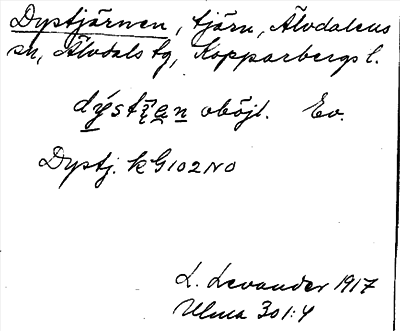 Dystjärnen, tjärn, Älvdalens
sn, Älvdals tg, Kopparbergs l.
oböjl. Ev.
Dystj. kG102NO
L. Levander 1917
Ulma 301:4